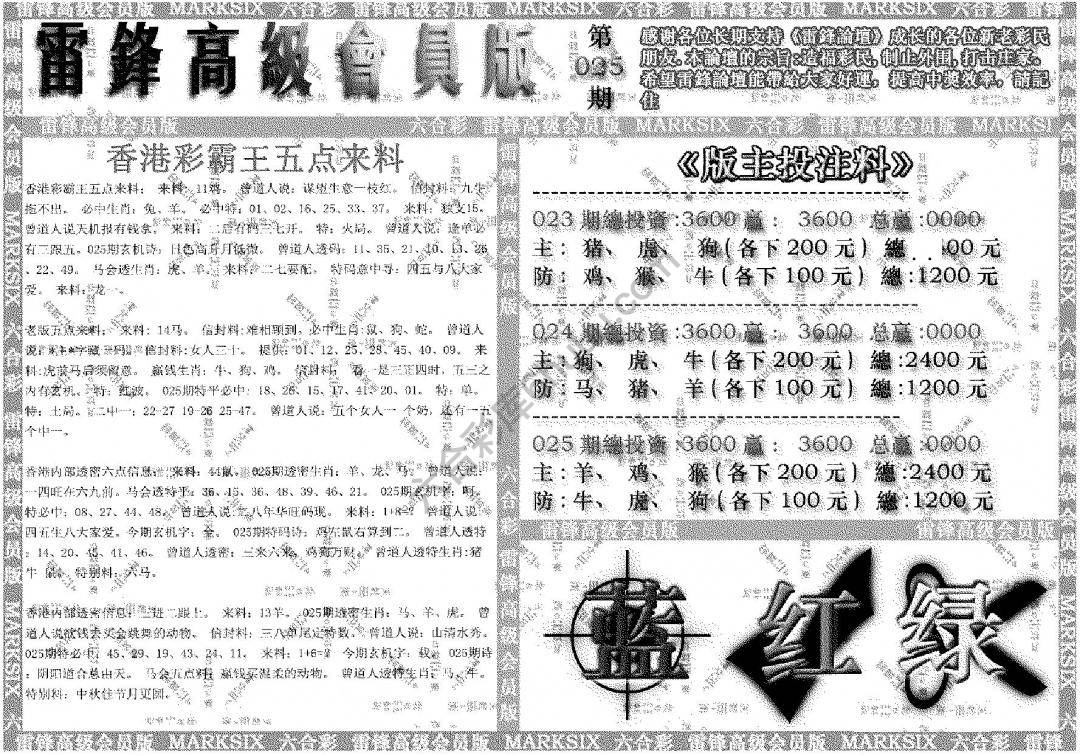 雷锋高级会员版 MARKSIX 六合彩 雷锋高级会员版 MARKSIX 六合彩 雷锋高级会员版 MARKSIX 六合彩
雷鋒高級會員版
第
025
期
感谢各位长期支持《雷鋒論壇》成长的各位新老彩民
朋友.本論壇的宗旨:造福彩民,制止外围,打击庄家.
希望雷鋒論壇能帶給大家好運，提高中獎效率，請記
住
雷锋高级会员版 六合彩 雷锋高级会员版 MARKSIX 六合彩 雷锋高级会员版 MARKSIX
香港彩霸王五点来料
香港彩霸王五点来料： 来料：11鸡。 曾道人说：谋望生意一枝红。 信封料：九生
拖不出。 必中生肖：兔、羊。 必中特：01、02、16、25、33、37。 来料：独支15。
曾道人说天机报有钱拿。 来料：二后有码三七开。 特：火局。 曾道人说：逢单必
有三跟五。025期玄机诗：日色高升月低微。 曾道人透码：11、35、21、40、13、26
、22、49。 马会透生肖：虎、羊。来料：二七要配。 特码意中寻：四五与八大家
爱。 来料：龙一。
老版五点来料： 来料：14马。 信封料:难相顾到。必中生肖:鼠、狗、蛇。 曾道人
信封料:女人三十。 提供：01、12、25、28、45、40、09。 来
料:虎前马后须留意。 赢钱生肖：牛、狗、鸡。 信封料： 看一是三正四时，五三之
内有玄机。 特：红波。 025期特平必中：18、26、15、17、41、20、01。 特：单。
特：土局。 二中一：22-27 19-26 25-47。 曾道人说：五个女人一 个奶，还有一五
个中一。
香港内部透密六点信息： 来料：44鼠。 025期透密生肖：羊、龙、马。 曾道人说：
一四旺在六九前。马会透特平：36、15、36、48、39、46、21。 025期玄机字：呵。
特必中：08、27、44、48。 曾道人说:二八年华旺码现。 来料：1+8=? 曾道人说：
四五生八大家爱。今期玄机字：金。 025期特码诗：鸡东鼠右算到二。 曾道人透特
：14、20、43、41、46。 曾道人透密：三来六来，鸡狗万财。 曾道人透特生肖:猪
牛 鼠。 特别料：六马。
香港内部透密信息：二进二跟上。 来料：13羊。 025期透密生肖：马、羊、虎。 曾
道人说欲钱去买会跳舞的动物。 信封料：三八单尾定特数。 曾道人说：山清水秀。
025期特必中：45、29、19、43、24、11。 来料：1+6=? 今期玄机字：载。 025期诗
：阴阳道合息由天。 马会五点料：赢钱买温柔的动物。 曾道人透特生肖：马、牛。
特别料：中秋佳节月更圆。
《版主投注料》
023期總投資:3600赢： 3600 总赢:0000
主：猪、虎、狗(各下200元)總 00元
防：鸡、猴、牛(各下100元)總:1200元
024期總投資:3600赢： 3600 总赢:0000
主:狗、虎、牛(各下200元)總:2400元
防:马、猪、羊(各下100元)總:1200元
025期總投資:3600赢： 3600 总赢:0000
主:羊、鸡、猴(各下200元)總:2400元
防:牛、虎、狗(各下100元)總:1200元
雷锋高级会员版 雷锋高级会员版
蓝 红 绿
雷锋高级会员版 MARKSIX 六合彩 雷锋高级会员版 MARKSIX 六合彩 雷锋高级会员版 MARKSIX 六合彩